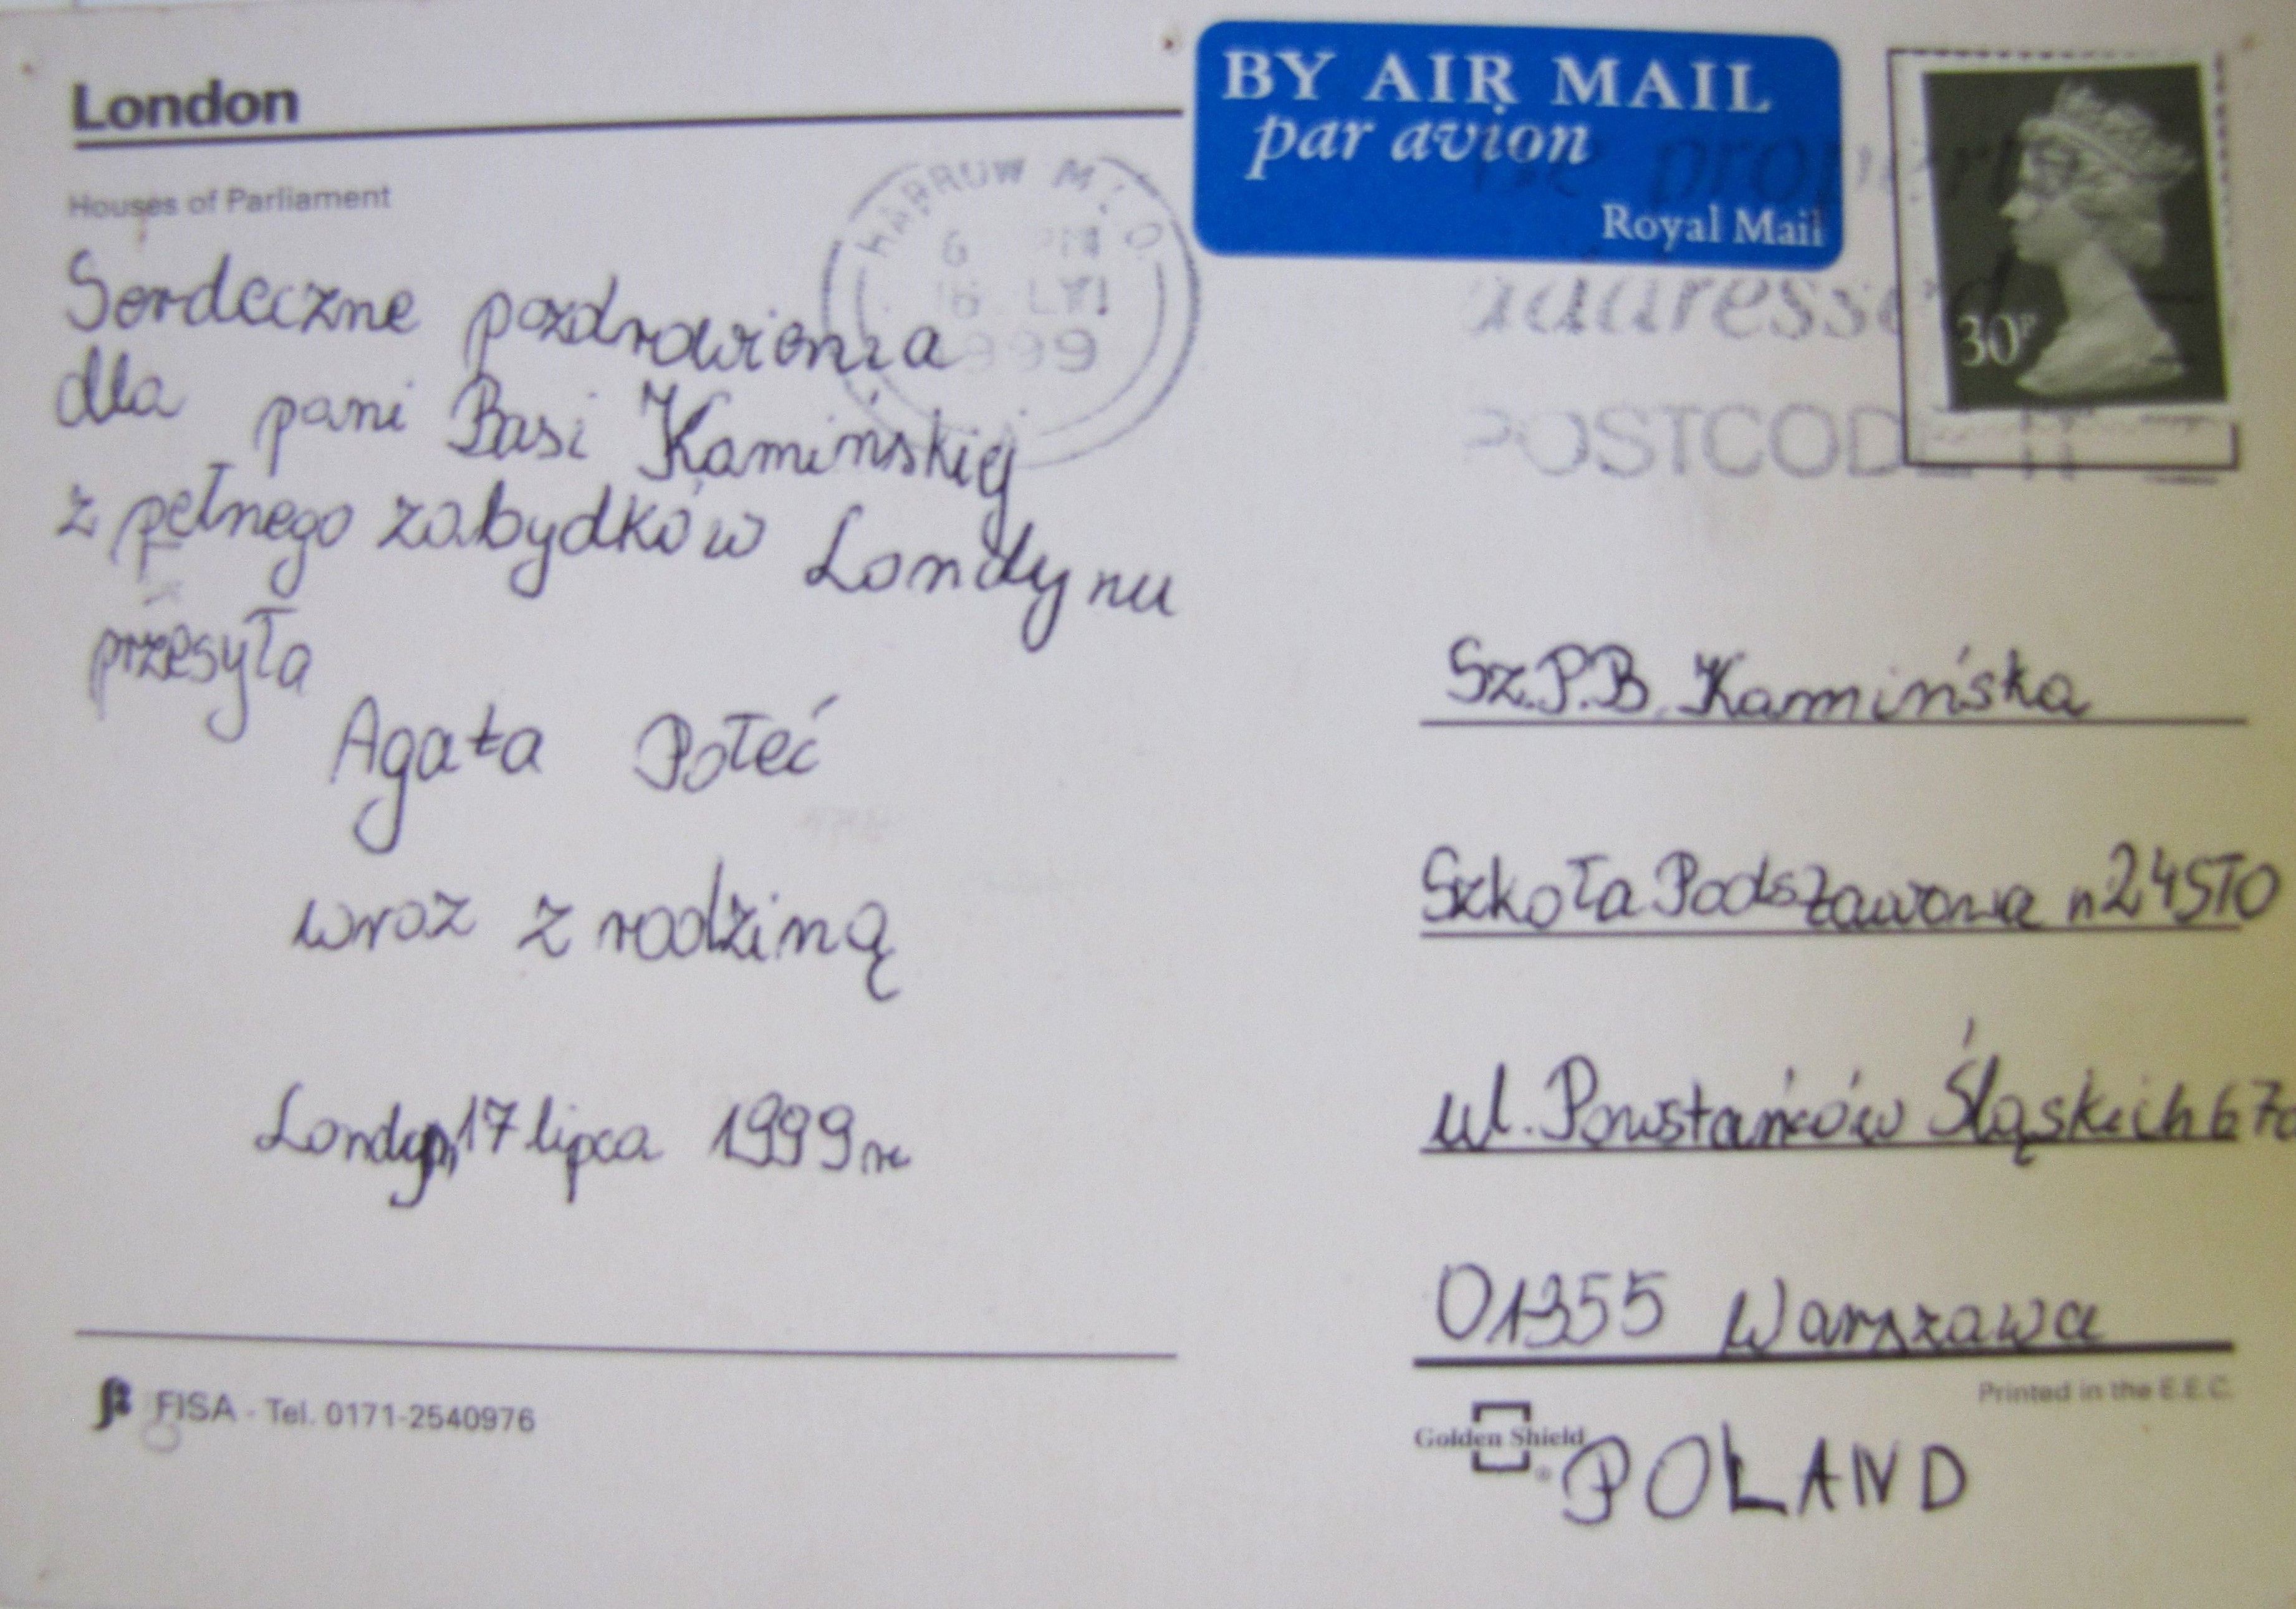 London
Houses of Parliament
Serdeczne pozdrowienia
dla pani Basi Kamińskiej
z pełnego zabydków Londynu
przesyła
Agata Połeć
wraz z rodziną
Londyn, 17 lipca 1999 r
FISA - Tel. 0171-2540976
BY AIR MAIL
par avion
Royal Mail
HARROW M.L.O.
6 PM
1999
be properly
addressed
POSTCODE IT
30P
Sz.P.B. Kamińska
Szkoła Podstawowa STO
ul. Powstańców Śląskich 67a
01355 Warszawa
Printed in the E.E.C.
Golden Shield
POLAND